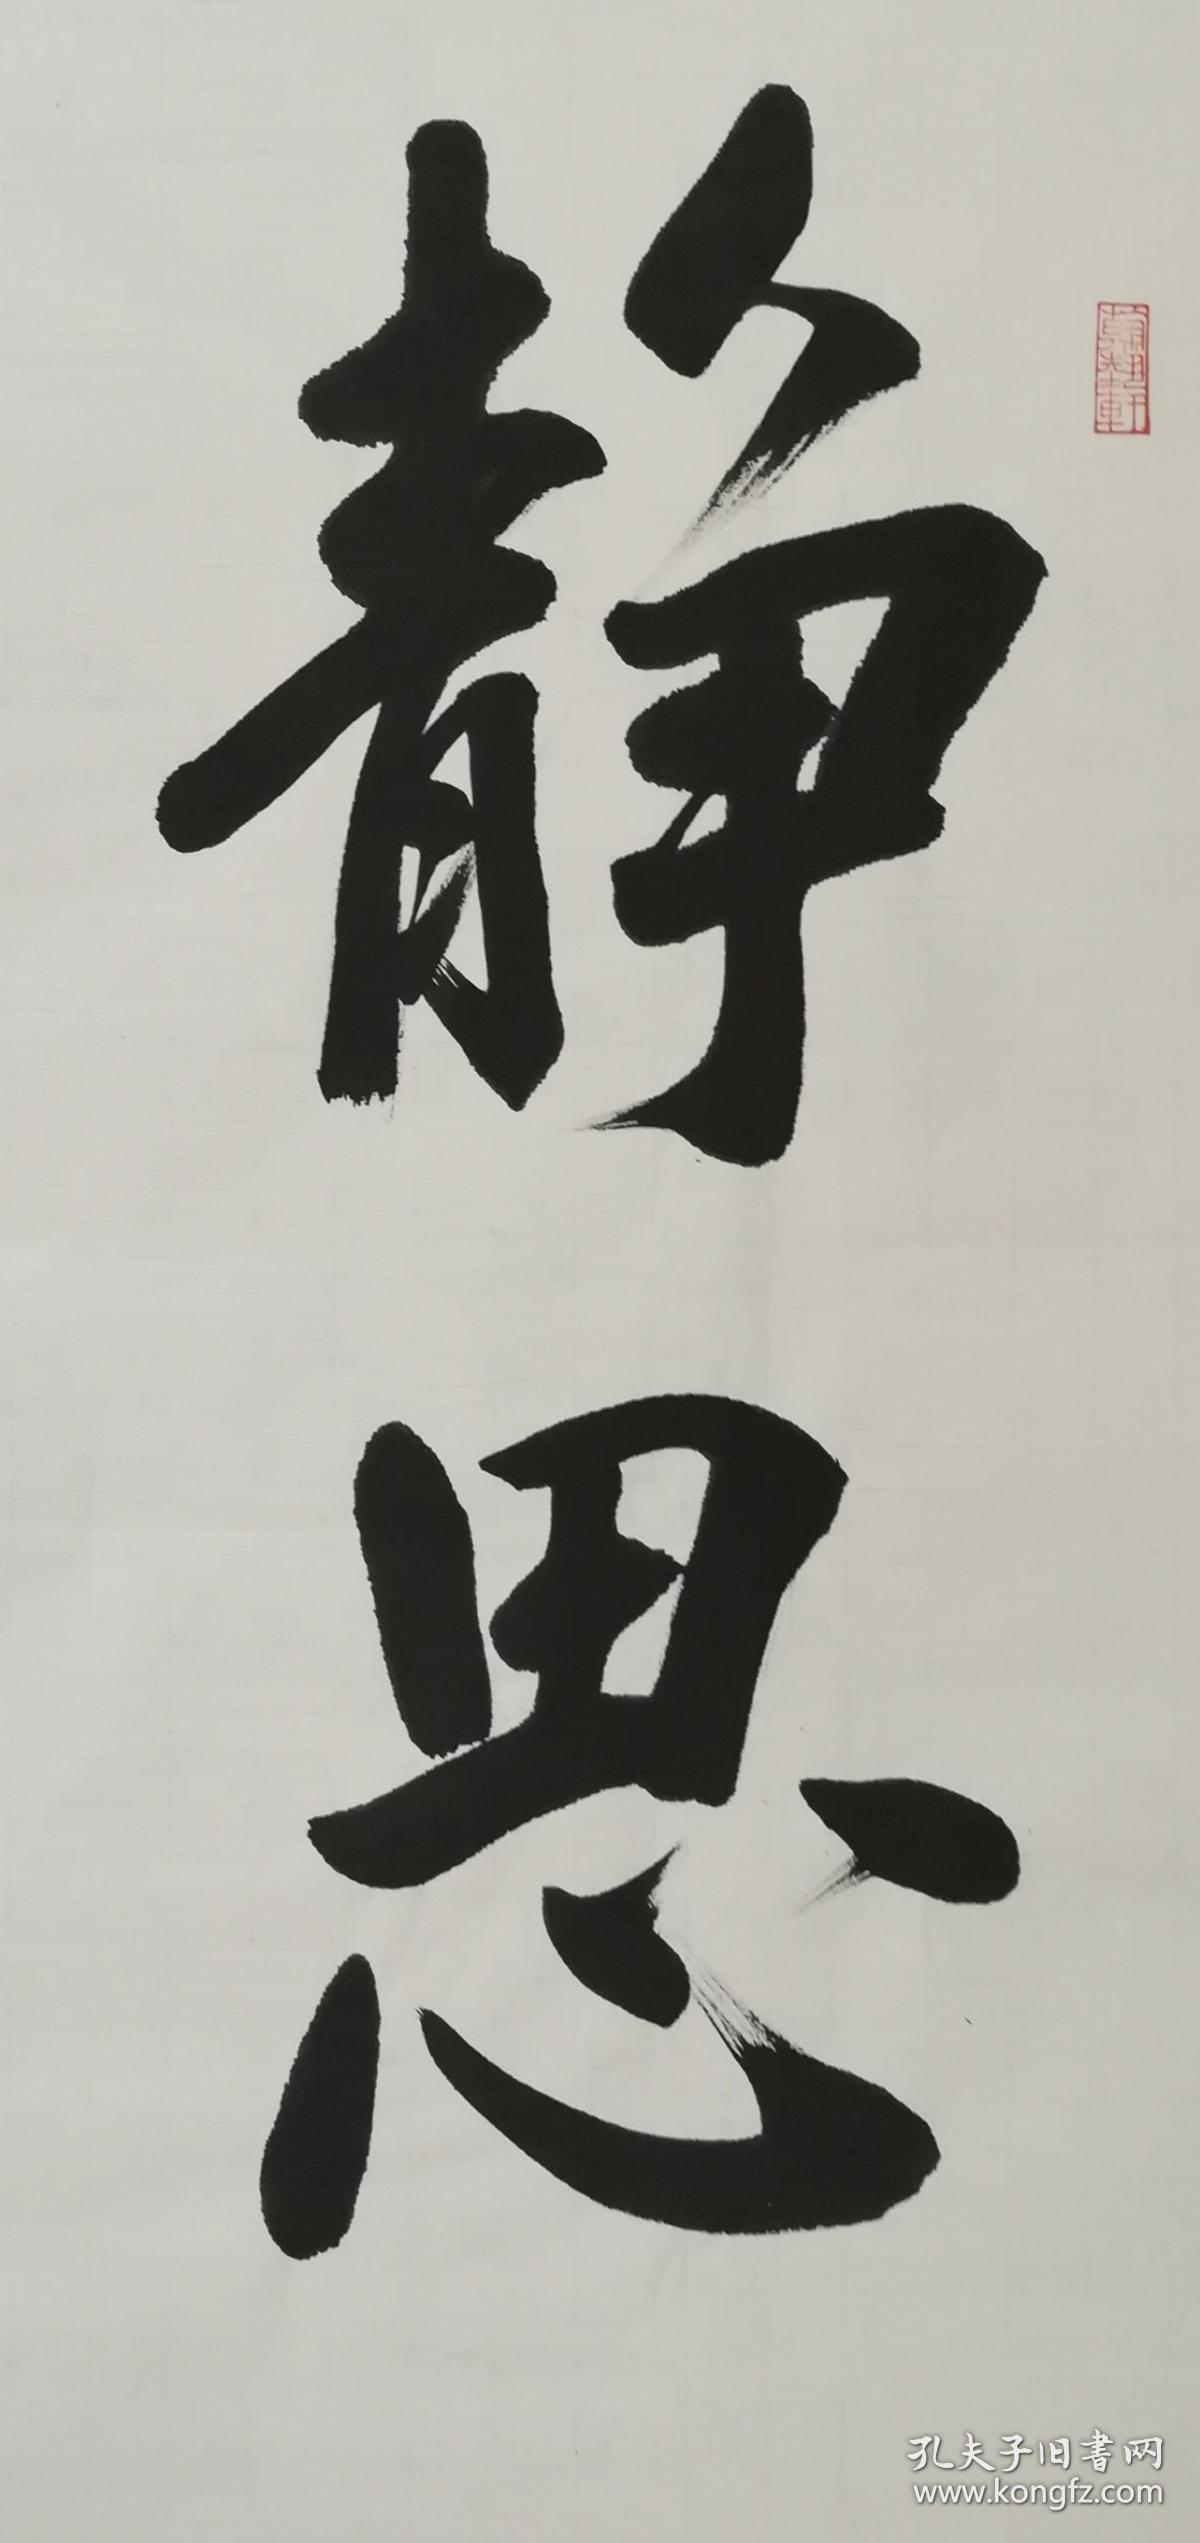 静思
孔夫子旧書网
www.kongfz.com